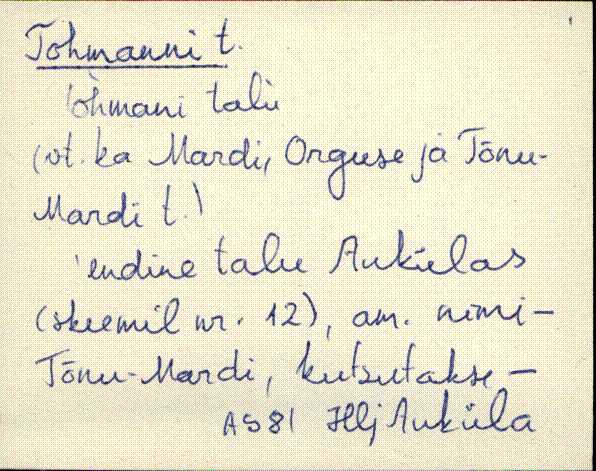 Tohmanni t.
Tohmani talu
(vt. ka Mardi, Orguse ja Tõnu-
Mardi t.)
endine talu Auküłas
(skeemil nr. 12), am. nimi -
Tõnu-Mardi, kutsutakse -
AS81 Hlj Auküla